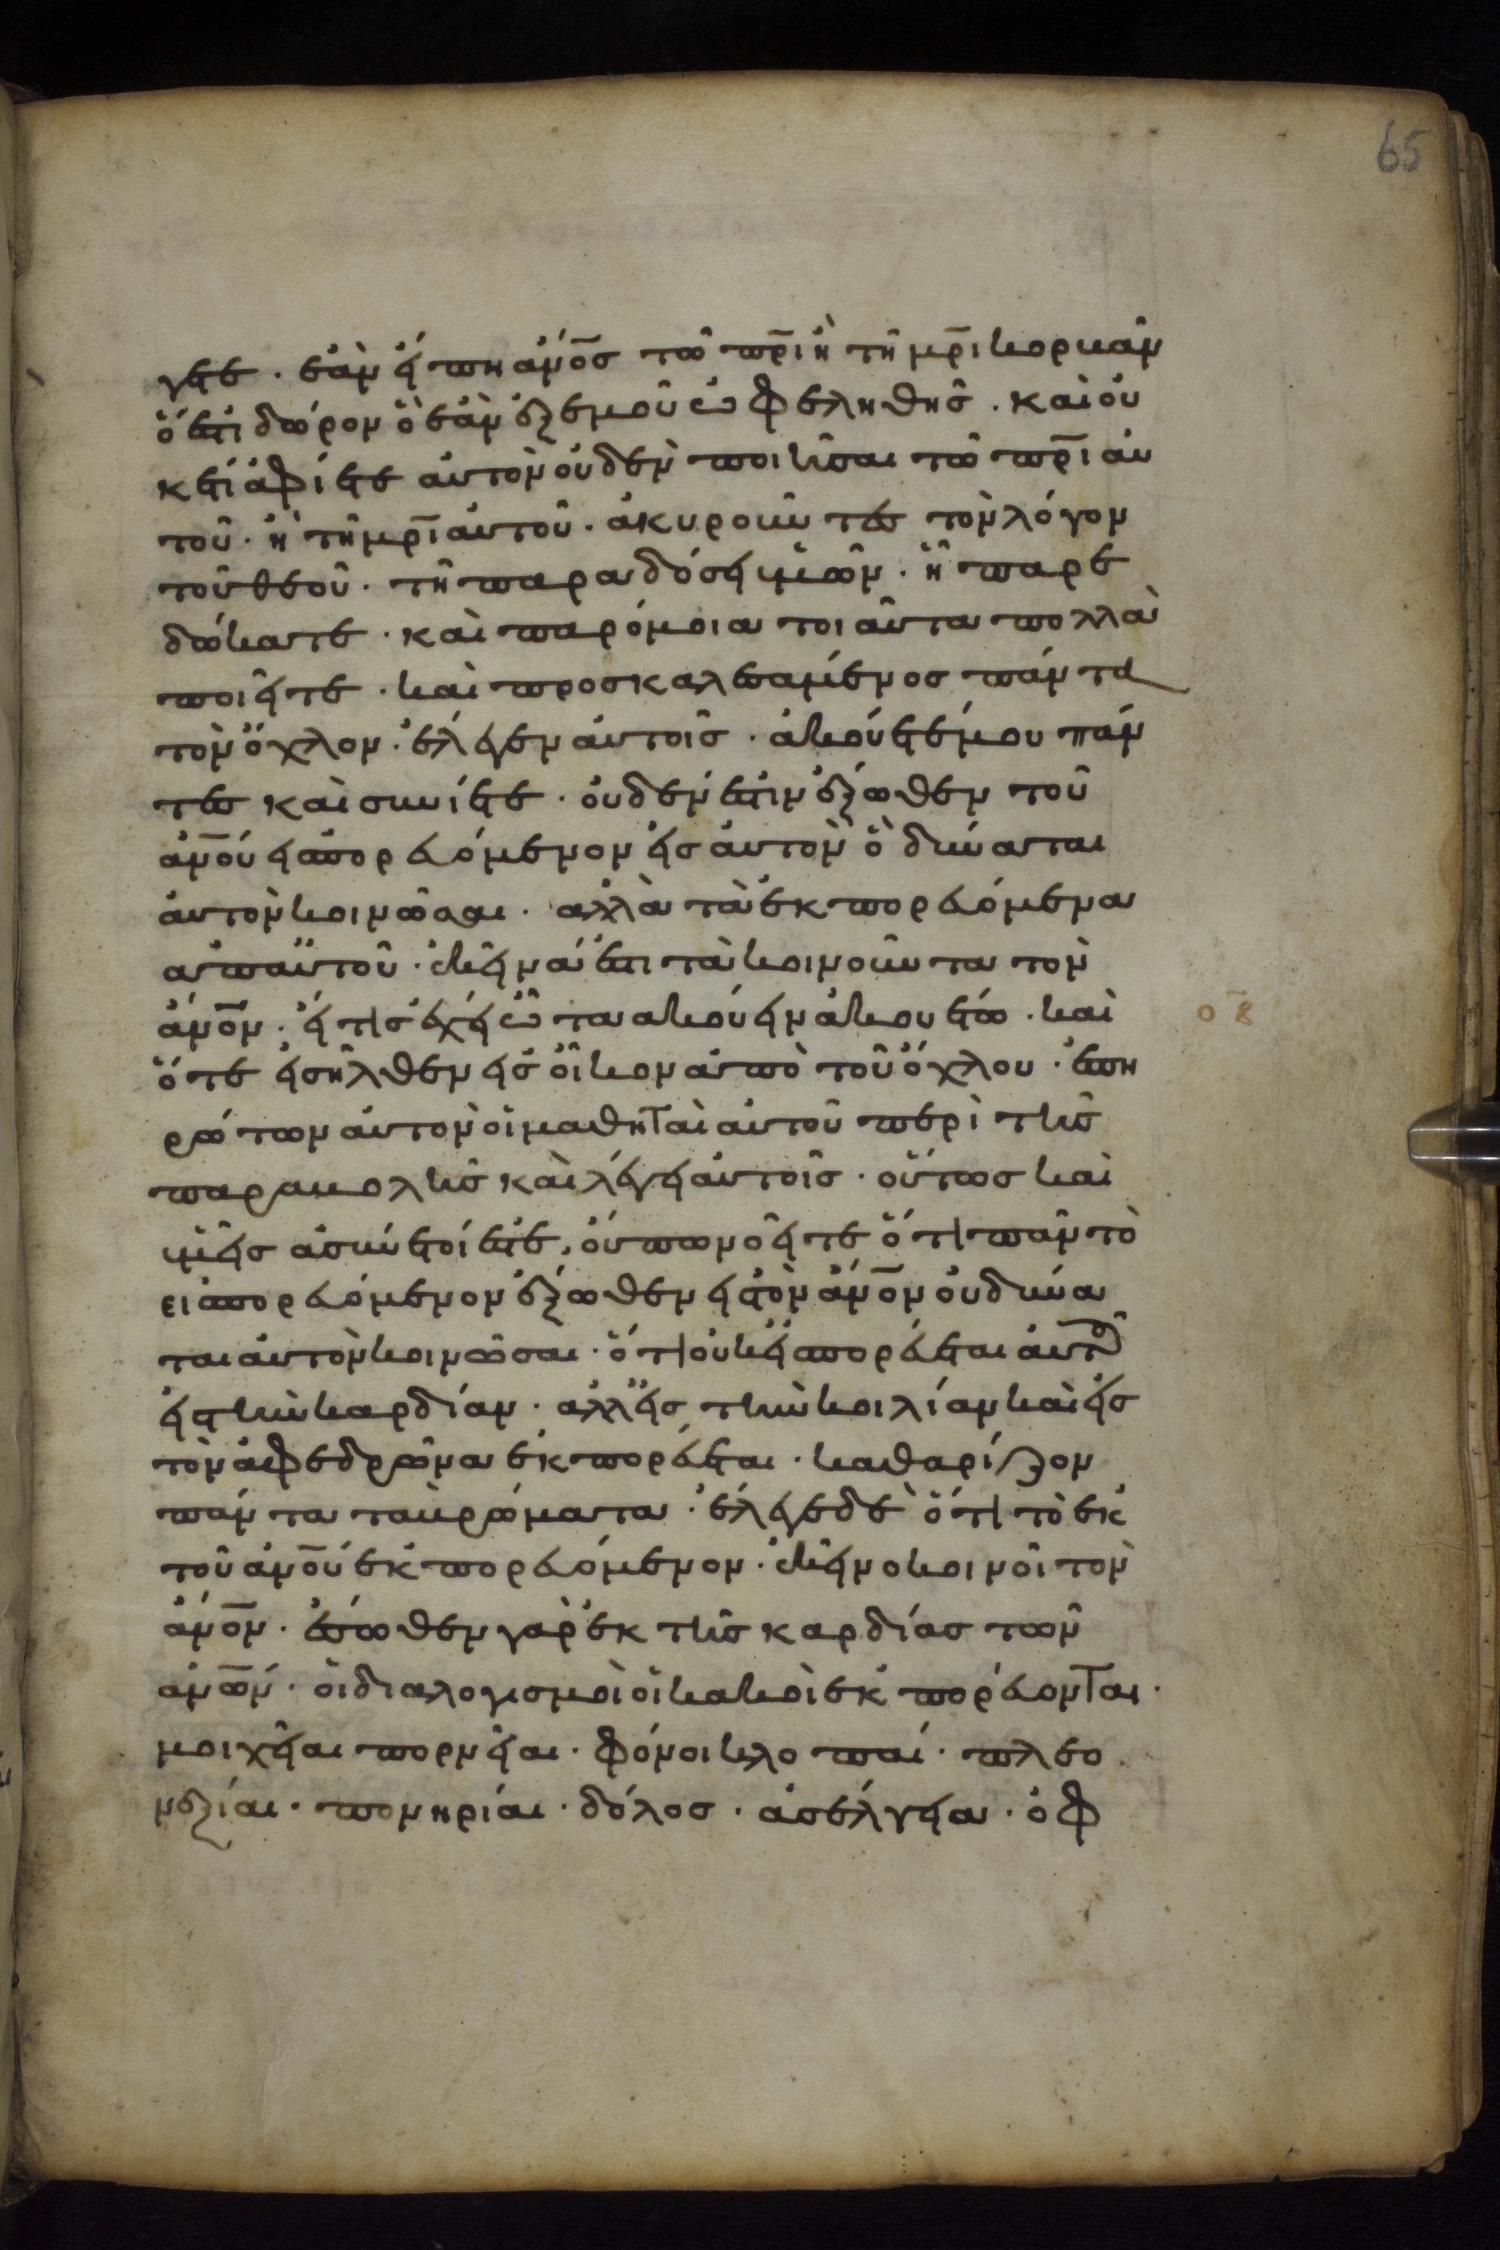 65
γετε· ἐὰν εἴπη ἄνο̅ς τῶ πρ̅ι ἢ τῆ μρ̅ι κορκᾶν
ὅ ἐστι δῶρον ὃ ἐὰν ἐξ ἐμοῦ ὠφεληθῆς. καὶ οὐ
κέτι ἀφίετε αὐτὸν οὐδὲν ποιῆσαι τῶ πρ̅ι αὐ
τοῦ· ἢ τῆ μρ̅ι αὐτοῦ· ἀκυροῦντες τὸν λόγον
τοῦ θεοῦ· τῆ παραδόσει ὑμῶν· ἧ παρε
δώκατε· καὶ παρόμοια τοιαῦτα πολλὰ
ποιεῖτε· καὶ προσκαλεσαμένος πάντα
τὸν ὄχλον· ἔλεγεν αὐτοῖς· ἀκούετέ μου πάν
τες καὶ συνίετε· οὐδέν ἐστιν ἔξωθεν τοῦ
ἀνο̅ύ εἰσπορευόμενον εἰς αὐτὸν ὃ δύναται
αὐτὸν κοινῶσαι· ἀλλὰ τὰ ἐκπορευόμενα
ἀπ αὐτοῦ· ἐκεῖνά ἐστι τὰ κοινοῦντα τὸν
ἄνο̅ν· εἴ τις ἔχει ὦτα ἀκούειν ἀκουέτω· καὶ
ο̅β
ὅτε εἰσῆλθεν εἰς οἶκον ἀπὸ τοῦ ὄχλου· ἐπη
ρώτων αὐτὸν οἱ μαθηταὶ αὐτοῦ περὶ τῆς
παραβολῆς καὶ λέγει αὐτοῖς· οὕτως καὶ
ὑμεῖς ἀσύνετοί ἐστε, οὔπω νοεῖτε ὅτι πᾶν τὸ
εἰσπορευόμενον ἔξωθεν εἰς τὸν ἄνο̅ν οὐ δύνα
ται αὐτὸν κοινῶσαι· ὅτι οὐκ εἰσπορεύεται αὐτοῦ
εἰς τὴν καρδίαν· ἀλλ εἰς τὴν κοιλίαν καὶ εἰς
τὸν ἀφεδρῶνα ἐκπορεύεται· καθαρίζον
πάντα τὰ βρώματα· ἔλεγε δὲ ὅτι τὸ ἐκ
τοῦ ἀνο̅ύ ἐκπορευόμενον· ἐκεῖνο κοινοῖ τὸν
ἄνο̅ν· ἔσωθεν γὰρ ἐκ τῆς καρδίας τῶν
ἀνω̅ν· οἱ διαλογισμοὶ οἱ κακοὶ ἐκπορεύονται·
μοιχεῖαι πορνεῖαι· φόνοι κλοπαί· πλεο
νεξίαι· πονηρίαι· δόλος· ἀσέλγεια· ὀφ